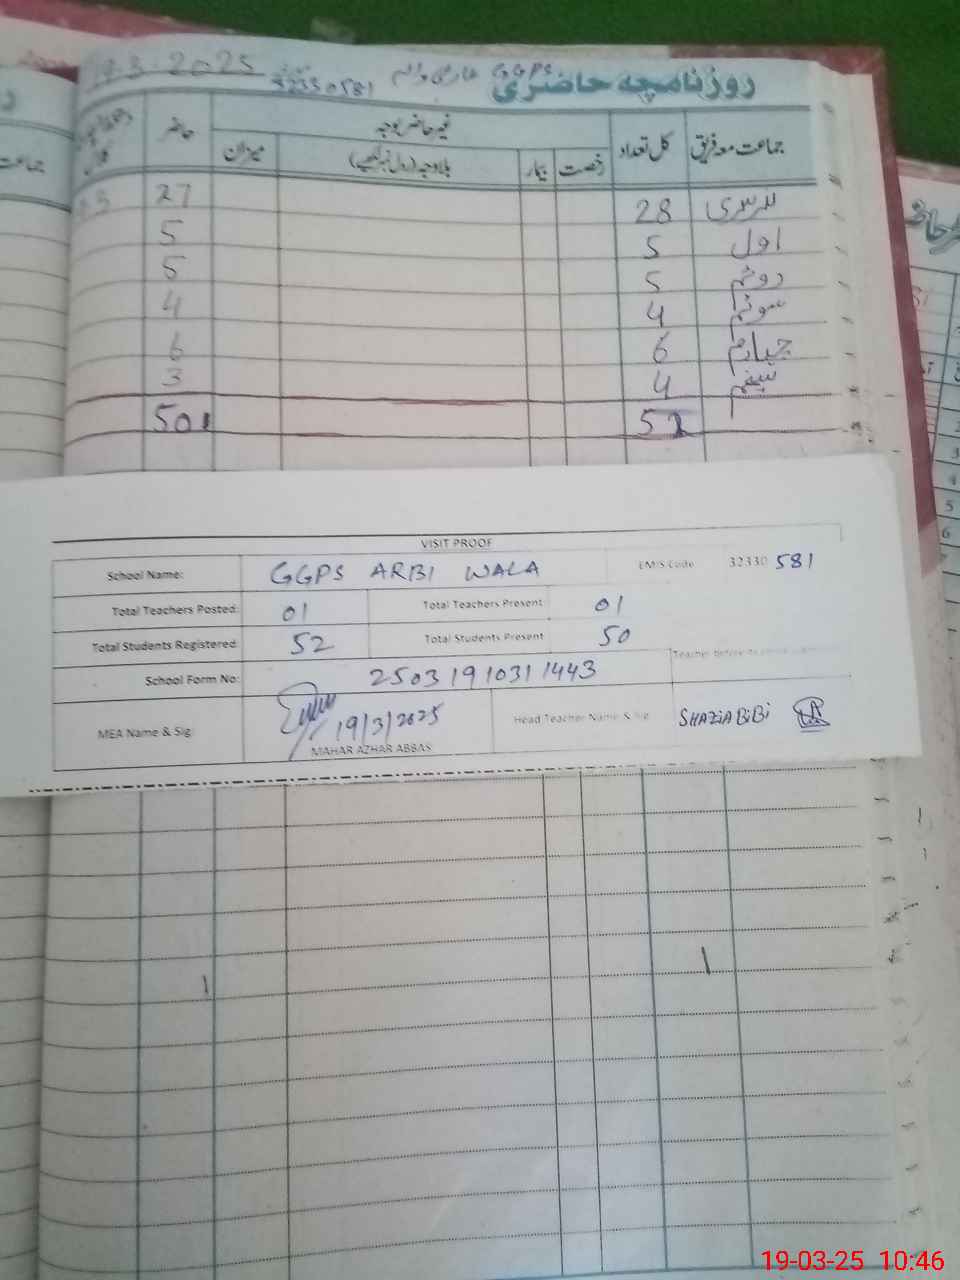 19.3.2025 32330581 GGPS عاربی والہ روزنامچہ حاضری
جماعت معہ فریق کل تعداد غیر حاضر بوجہ حاضر
رخصت بیمار بلاوجہ (رول نمبر لکھیے) میزان
نرسری 28 27
اول 5 5
دوئم 5 5
سوئم 4 4
چہارم 6 6
پنجم 4 3
52 50
VISIT PROOF
School Name: GGPS ARBI WALA EMIS Code 32330 581
Total Teachers Posted: 01 Total Teachers Present: 01
Total Students Registered: 52 Total Students Present 50
School Form No: 25031910311443
MEA Name & Sig: 19/3/2025 Head Teacher Name & Sig SHAZIA BIBI
MAHAR AZHAR ABBAS
19-03-25 10:46